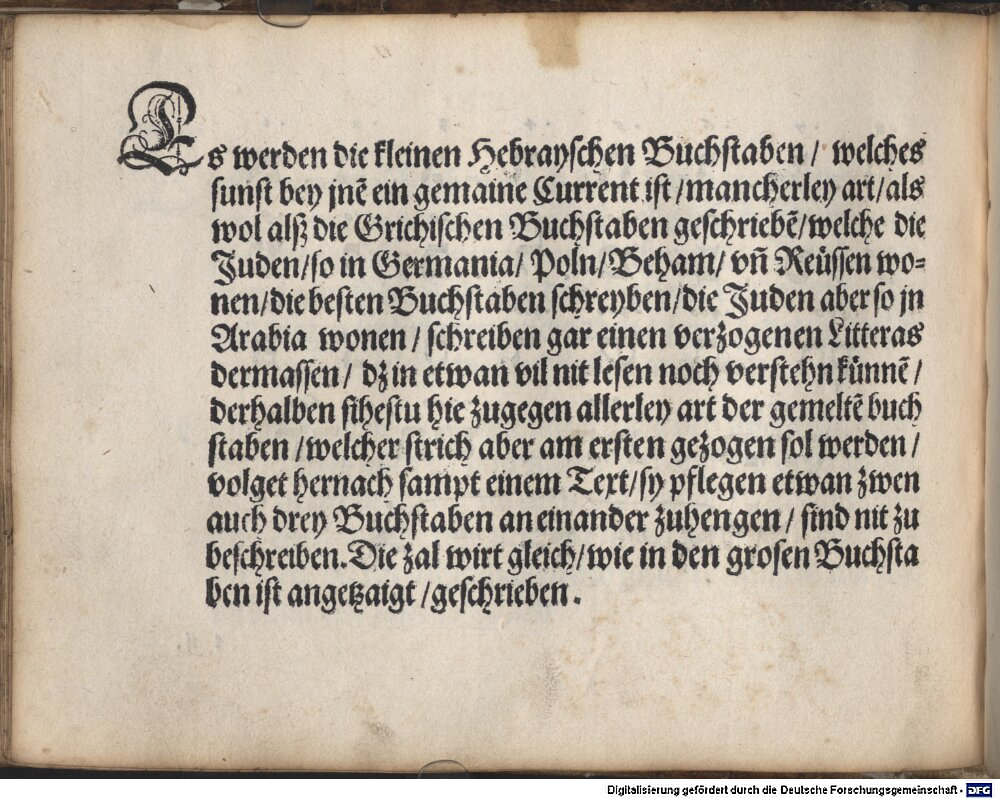 Es werden die kleinen Hebrayschen Buchstaben / welches
sunst bey jnē ein gemaine Current ist / mancherley art / als
wol alß die Grichischen Buchstaben geschriebē / welche die
Juden / so in Germania / Poln / Beham / vñ Reüssen wo⸗
nen / die besten Buchstaben schreyben / die Juden aber so jn
Arabia wonen / schreiben gar einen verzogenen Litteras
dermassen / dz in etwan vil nit lesen noch verstehn künnē /
derhalben sihestu hie zugegen allerley art der gemeltē buch
staben / welcher strich aber am ersten gezogen sol werden /
volget hernach sampt einem Text / sy pflegen etwan zwen
auch drey Buchstaben an einander zuhengen / sind nit zu
beschreiben. Die zal wirt gleich / wie in den grosen Buchsta
ben ist angetzaigt / geschrieben.
Digitalisierung gefördert durch die Deutsche Forschungsgemeinschaft - DFG